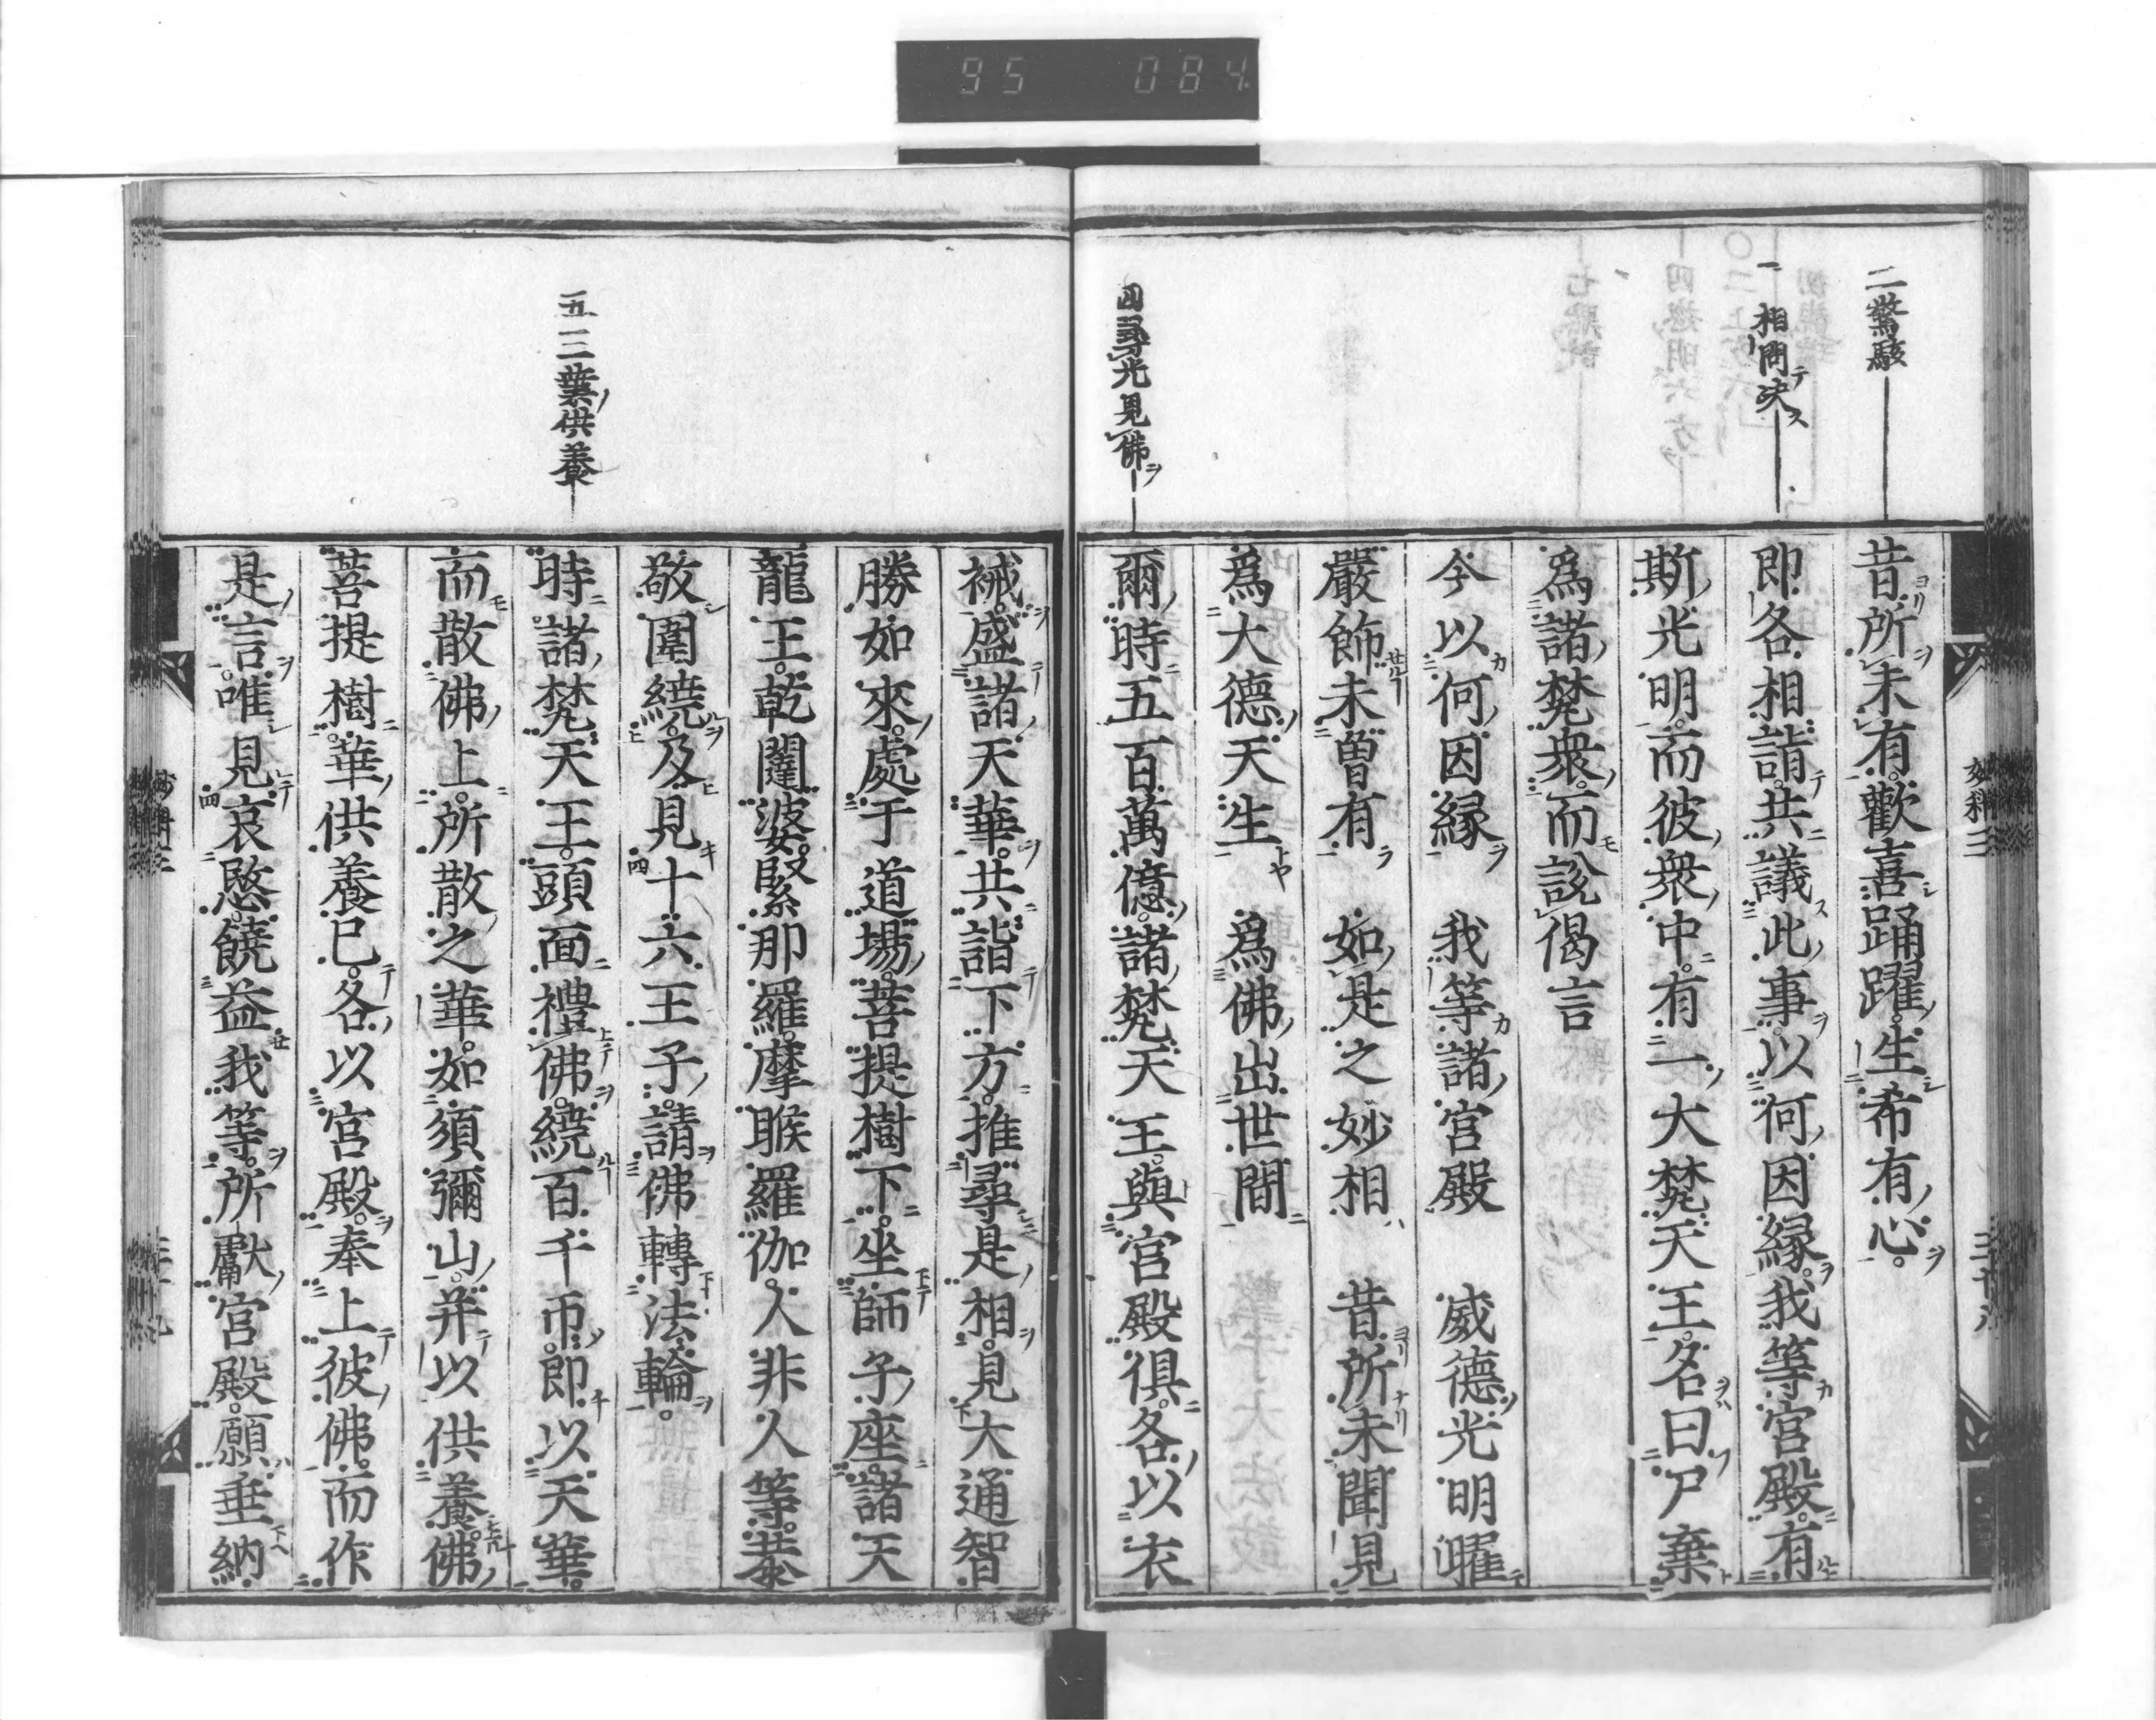 95 084
二驚駭
一相問決
四尋光見佛
昔所未有歡喜踊躍生希有心
即各相詣共議此事以何因縁我等宮殿有
斯光明而彼衆中有一大梵天王名曰尸棄
爲諸梵衆而説偈言
今以何因縁　我等諸宮殿　威德光明曜
嚴飾未曽有　如是之妙相　昔所未聞見
爲大德天生　爲佛出世間
爾時五百萬億諸梵天王與宮殿俱各以衣
五三業供養
裓盛諸天華共詣下方推尋是相見大通智
勝如來處于道場菩提樹下坐師子座諸天
龍王乾闥婆緊那羅摩睺羅伽人非人等恭
敬圍繞及見十六王子請佛轉法輪
時諸梵天王頭面禮佛繞百千帀即以天華
而散佛上所散之華如須彌山并以供養佛
菩提樹華供養已各以宮殿奉上彼佛而作
是言唯見哀愍饒益我等所獻宮殿願垂納